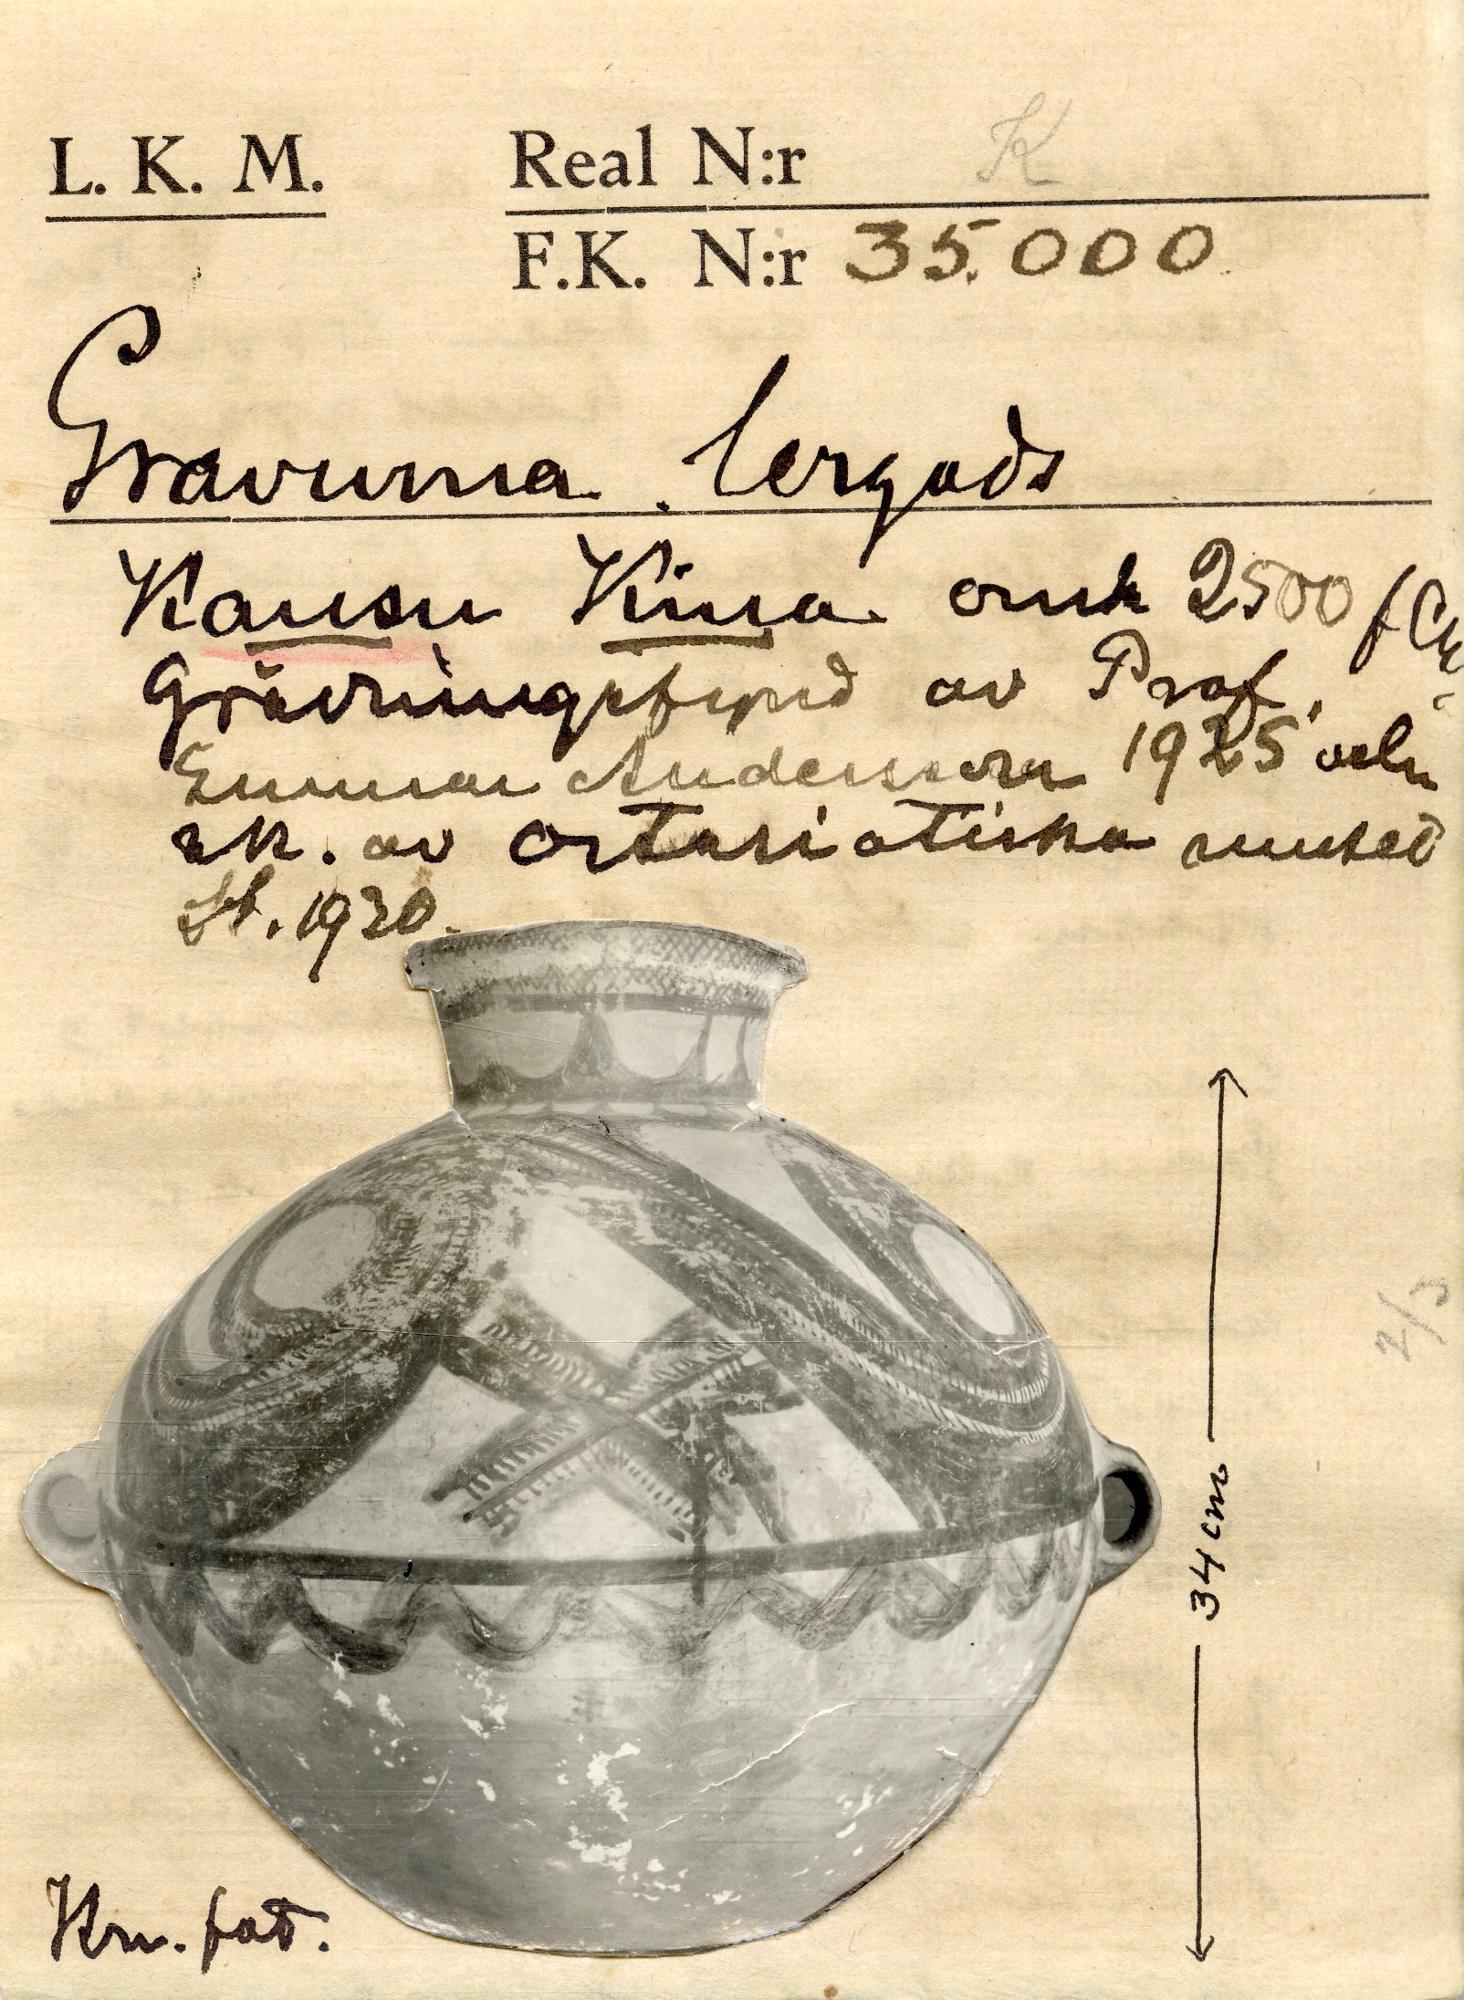 L. K. M.
Real N:r K
F.K. N:r 35.000
Gravurna. lergods
Kansu Kina omk 2500 f Ch.
Grävningsfynd av Prof.
Gunnar Andersson 1925 och
sk. av Östasiatiska museet
1930.
34 cm
2/3
Km. fat.